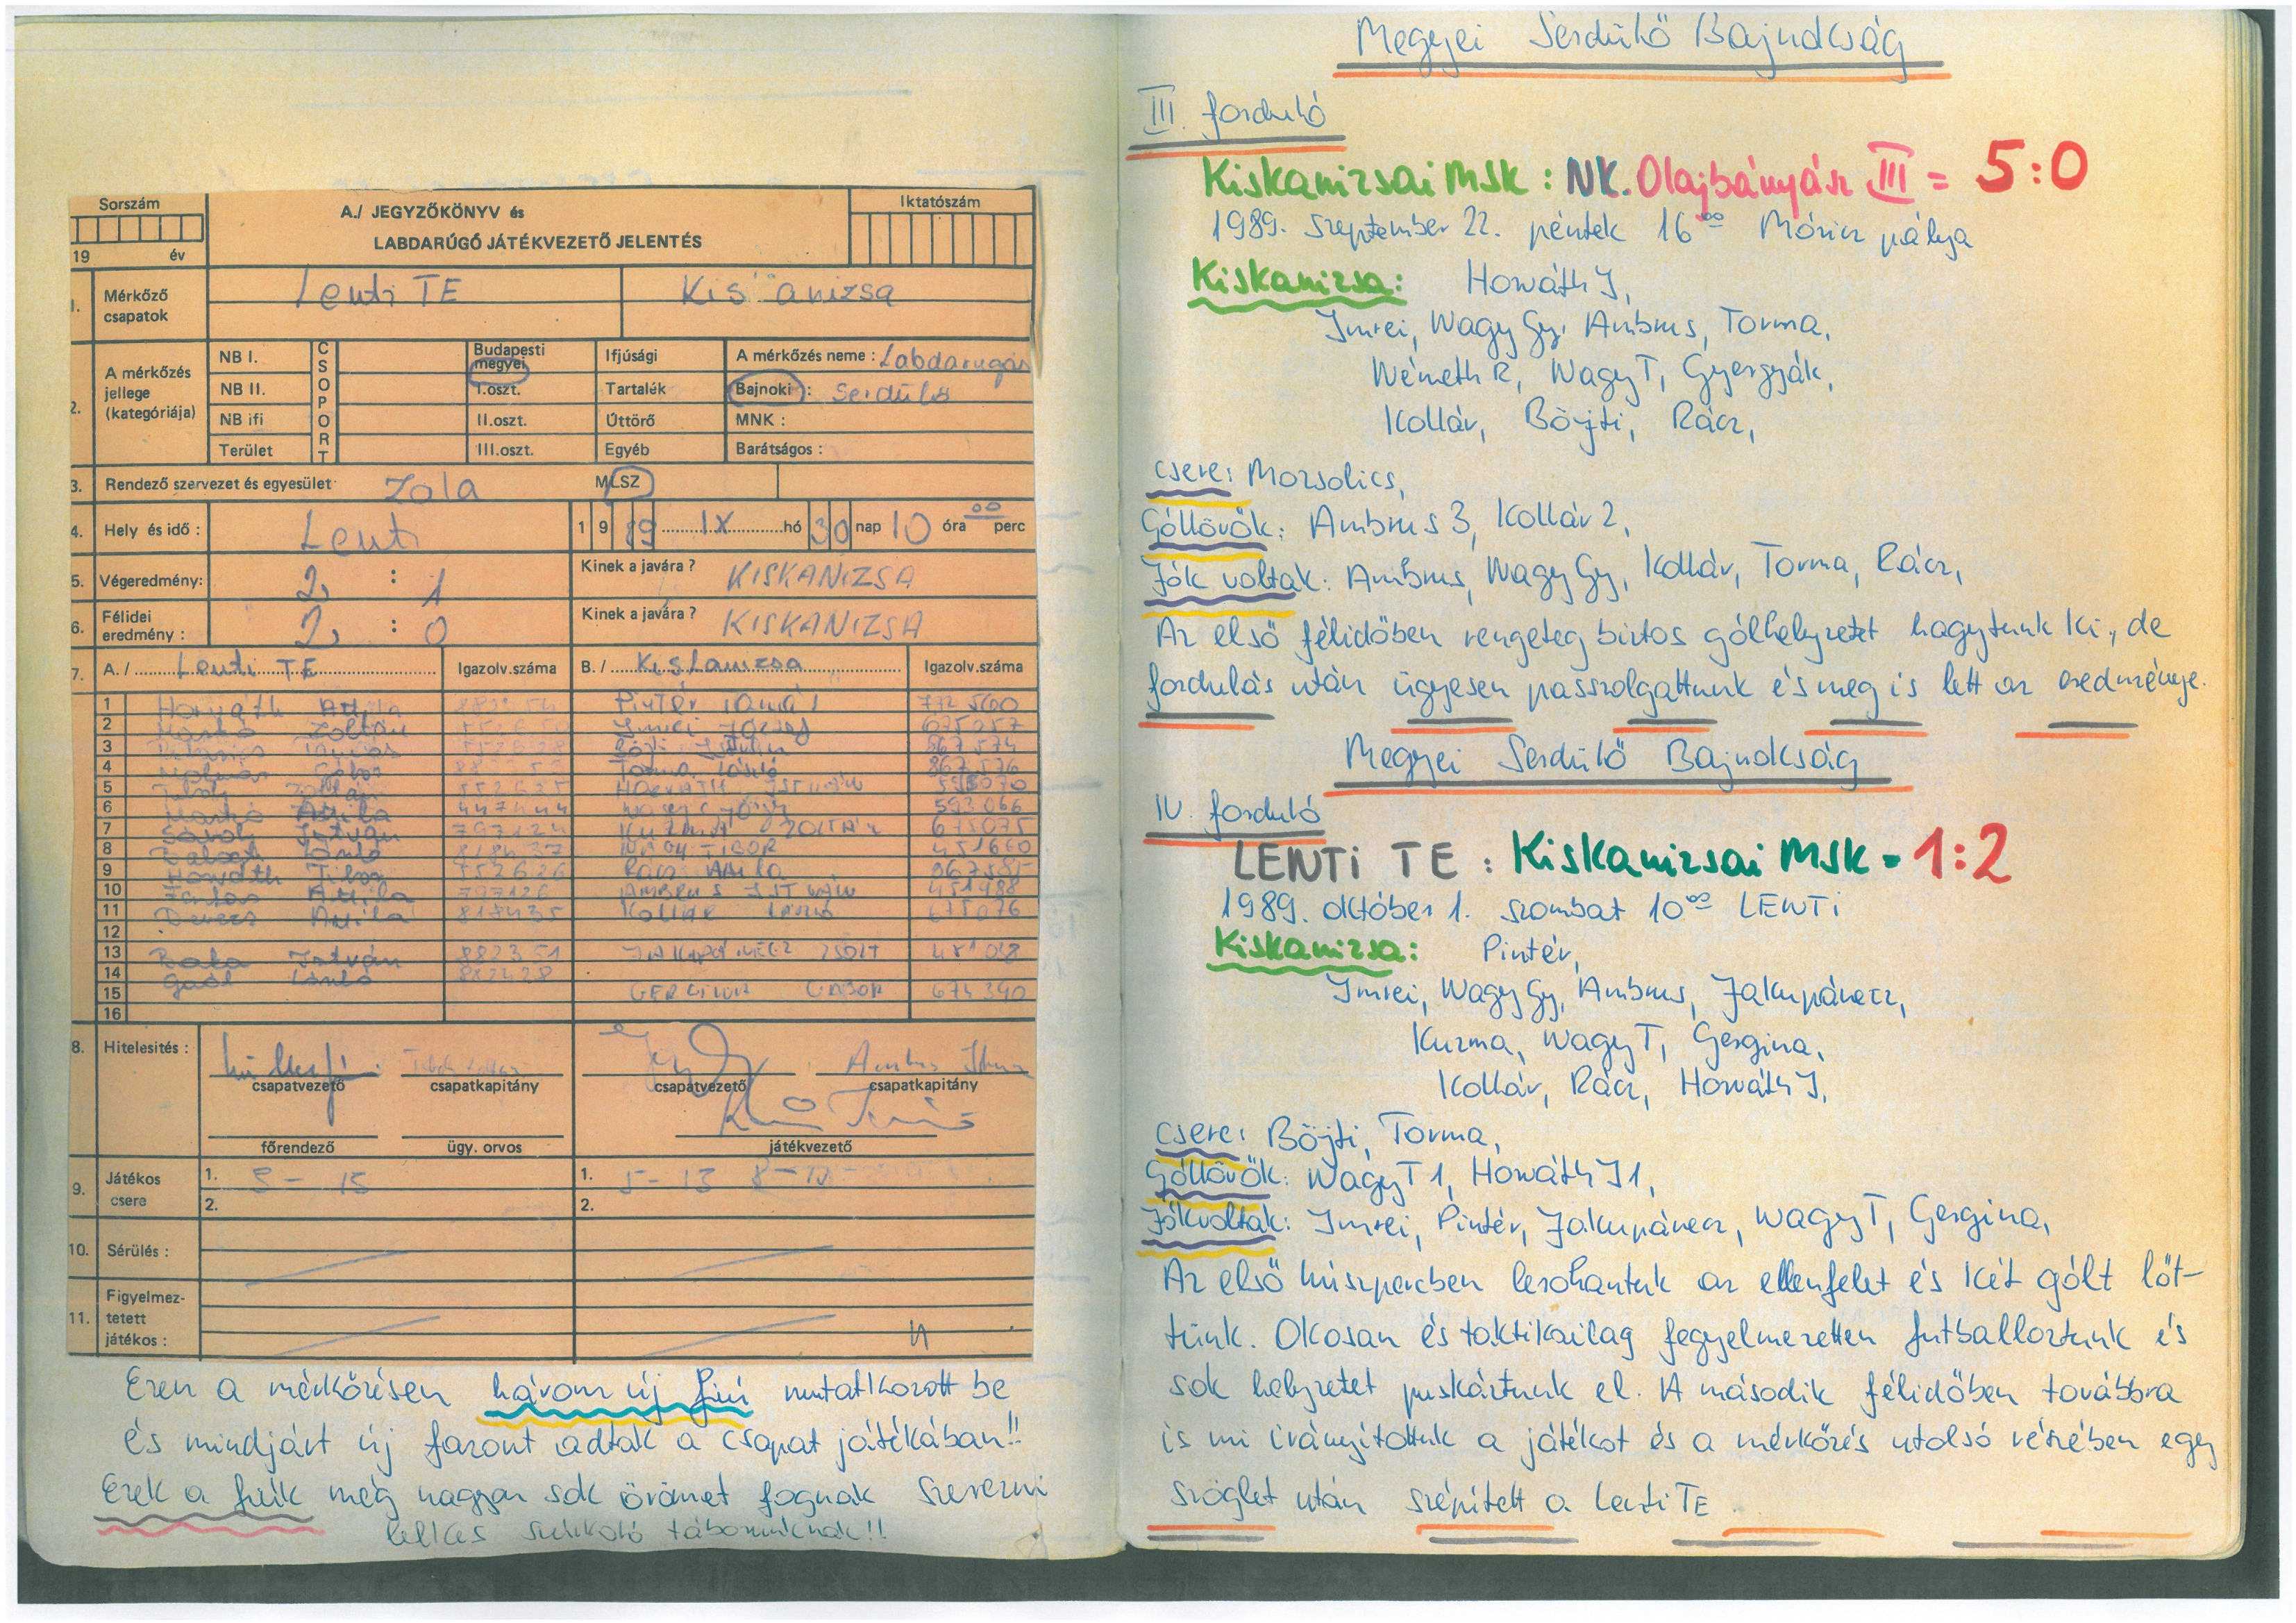 Sorszám
19 év
A./ JEGYZŐKÖNYV és
LABDARÚGÓ JÁTÉKVEZETŐ JELENTÉS
Iktatószám
1. Mérkőző csapatok Lenti TE Kis anizsa
2. A mérkőzés jellege (kategóriája)
NB I. CSOPORT Budapesti megyei Ifjúsági A mérkőzés neme: Labdarugás
NB II. I.oszt. Tartalék Bajnoki: Serdülő
NB ifi II.oszt. Úttörő MNK:
Terület III.oszt. Egyéb Barátságos:
3. Rendező szervezet és egyesület Zala MLSZ
4. Hely és idő: Lenti 1989 IX hó 30 nap 10 óra 00 perc
5. Végeredmény: 2 : 1 Kinek a javára? KISKANIZSA
6. Félidei eredmény: 2 : 0 Kinek a javára? KISKANIZSA
7. A./ Lenti TE Igazolv.száma B./ Kiskanizsa Igazolv.száma
1 Horváth Attila Pintér 772560
2 Zoltán Imrei József 675057
3 Böjti István 867574
4 Torma László 867576
5 552625 HORVÁTH ISTVÁN
6 Markó Attila 447444 Nagy György 593066
7 István 797124 KUZMA ZOLTÁN 675075
8 Balogh László NAGY TIBOR 451660
9 Horváth Tibor 752626 Rácz Attila
10 Attila 797126 AMBRUS ISTVÁN 451488
11 Attila 817435 KOLLÁR László 675076
12
13 István 882351 ZSOLT
14 Gaál László 882428
15 GERGINA GÁBOR 674390
16
8. Hitelesítés: Ambrus István
csapatvezető csapatkapitány csapatvezető csapatkapitány
főrendező ügy. orvos játékvezető
9. Játékos csere 1. 5-15 1. 5-13
2. 2.
10. Sérülés:
11. Figyelmeztetett játékos:
Ezen a mérkőzésen három új fiú mutatkozott be
és mindjárt új fazont adtak a csapat játékában!!
Ezek a fiúk még nagyon sok örömet fognak szerezni
lelkes szurkoló táborunknak!!
Megyei Serdülő Bajnokság
III. forduló
Kiskanizsai MSK : NK. Olajbányász III = 5:0
1989. szeptember 22. péntek 16⁰⁰ Móricz pálya
Kiskanizsa: Horváth I,
Imrei, Nagy Gy, Ambrus, Torma,
Németh R, Nagy T, Gyergyák,
Kollár, Böjti, Rácz,
csere: Mozsolics,
Góllövők: Ambrus 3, Kollár 2,
Jók voltak: Ambrus, Nagy Gy, Kollár, Torma, Rácz,
Az első félidőben rengeteg biztos gólhelyzetet hagytunk ki, de
fordulás után ügyesen passzolgattunk és meg is lett az eredménye.
Megyei Serdülő Bajnokság
IV. forduló
LENTI TE : Kiskanizsai MSK = 1:2
1989. október 1. szombat 10⁰⁰ LENTI
Kiskanizsa: Pintér,
Imrei, Nagy Gy, Ambrus, Jakupánecz,
Kuzma, Nagy T, Gergina,
Kollár, Rácz, Horváth I,
csere: Böjti, Torma,
Góllövők: Nagy T 1, Horváth I 1,
Jók voltak: Imrei, Pintér, Jakupánecz, Nagy T, Gergina,
Az első húszpercben lerohantuk az ellenfelet és két gólt lőt-
tünk. Okosan és taktikailag fegyelmezetten futballoztunk és
sok helyzetet puskáztunk el. A második félidőben továbbra
is mi irányítottuk a játékot és a mérkőzés utolsó részében egy
szöglet után szépített a Lenti TE.